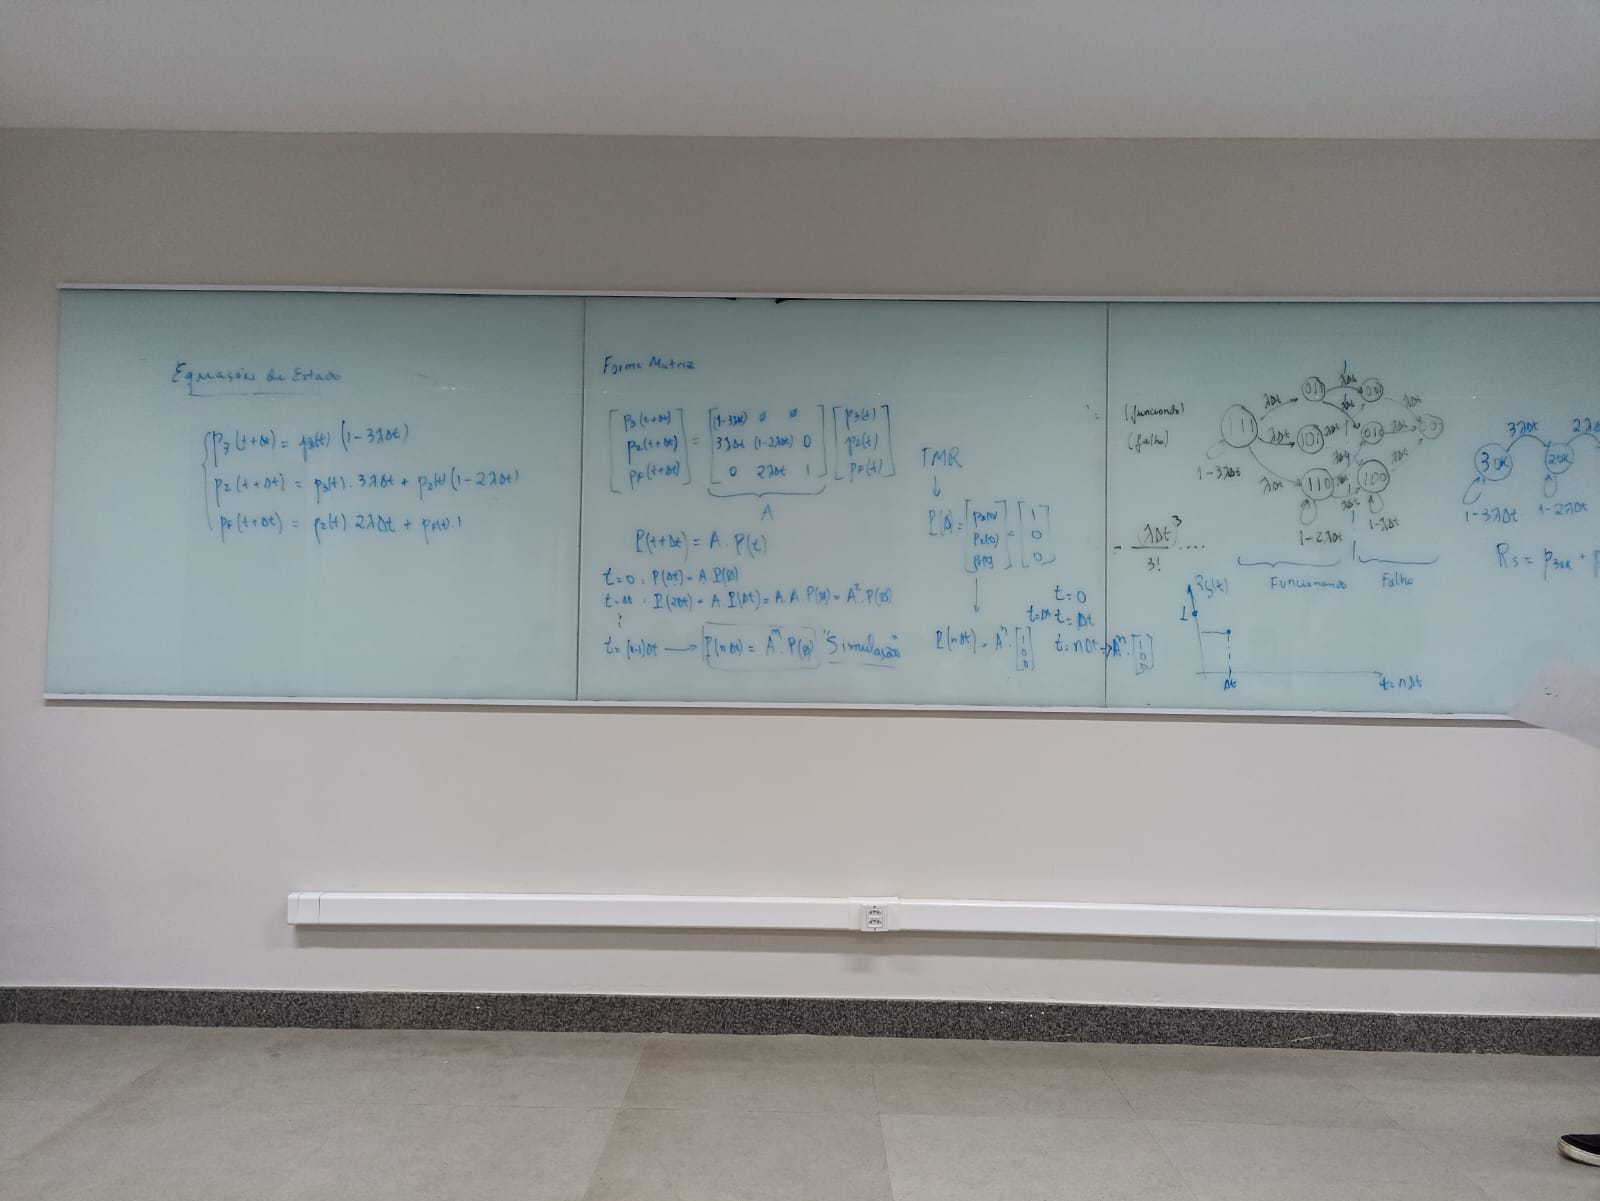 Equações de Estado
p3(t+Δt) = p3(t) (1-3λΔt)
p2(t+Δt) = p3(t). 3λΔt + p2(t)(1-2λΔt)
pF(t+Δt) = p2(t). 2λΔt + pF(t).1
Forma Matriz
p3(t+Δt) = (1-3λΔt) 0 0 p3(t)
p2(t+Δt) 3λΔt (1-2λΔt) 0 p2(t)
pF(t+Δt) 0 2λΔt 1 pF(t)
A
P(t+Δt) = A. P(t)
t=0: P(Δt) = A.P(0)
t=Δt: P(2Δt) = A.P(Δt) = A.A.P(0) = A².P(0)
⋮
t=(n-1)Δt → P(nΔt) = Aⁿ.P(0) "Simulação"
TMR
↓
P(0) = [p3(0) p2(0) pF(0)] = [1 0 0]
P(nΔt) = Aⁿ. [1 0 0]
t=0
t=Δt
t=nΔt ⇒ Aⁿ. [1 0 0]
(funcionando)
(falho)
- (λΔt)³ ....
3!
111
λΔt 011 λΔt 001 λΔt
λΔt 101 λΔt 010 λΔt
λΔt 110 λΔt 100 λΔt
1-3λΔt
1-2λΔt
1-λΔt
Funcionando
Falho
3λΔt 2λΔ
3OK 2OK
1-3λΔt 1-2λΔt
Rs = p3OK + p
Rs(t)
1
Δt
t=nΔt